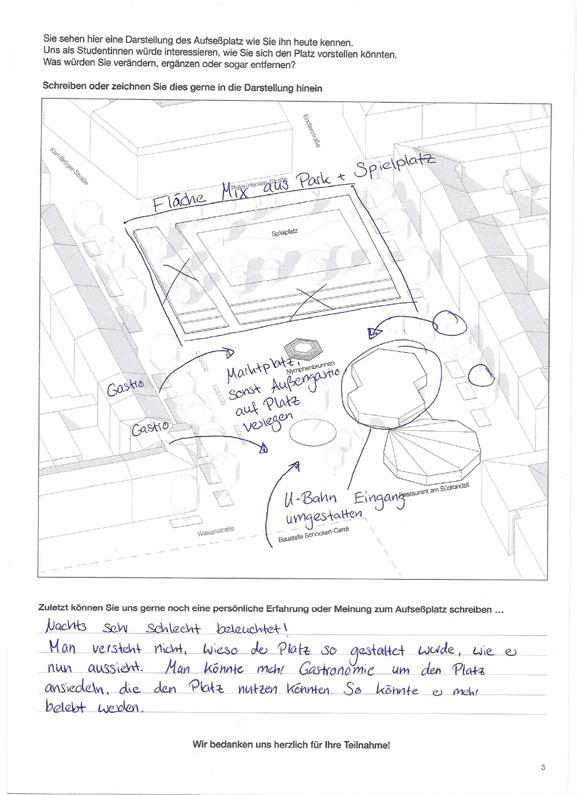 Sie sehen hier eine Darstellung des Aufseßplatz wie Sie ihn heute kennen.
Uns als Studentinnen würde interessieren, wie Sie sich den Platz vorstellen könnten.
Was würden Sie verändern, ergänzen oder sogar entfernen?
Schreiben oder zeichnen Sie dies gerne in die Darstellung hinein
Karl-Bröger-Straße
Endterstraße
Peter-Henlein-Straße
Fläche Mix aus Park + Spielplatz
Spielplatz
Nymphenbrunnen
Gastro
Marktplatz,
sonst Außengastro
auf Platz
verlegen
Gastro
U-Bahn Eingang
umgestalten
Restaurant am Südrondell
Wiesenstraße
Baustelle Schocken-Carré
Zuletzt können Sie uns gerne noch eine persönliche Erfahrung oder Meinung zum Aufseßplatz schreiben ...
Nachts sehr schlecht beleuchtet!
Man versteht nicht, wieso der Platz so gestaltet wurde, wie er
nun aussieht. Man könnte mehr Gastronomie um den Platz
ansiedeln, die den Platz nutzen könnten. So könnte er mehr
belebt werden.
Wir bedanken uns herzlich für Ihre Teilnahme!
3